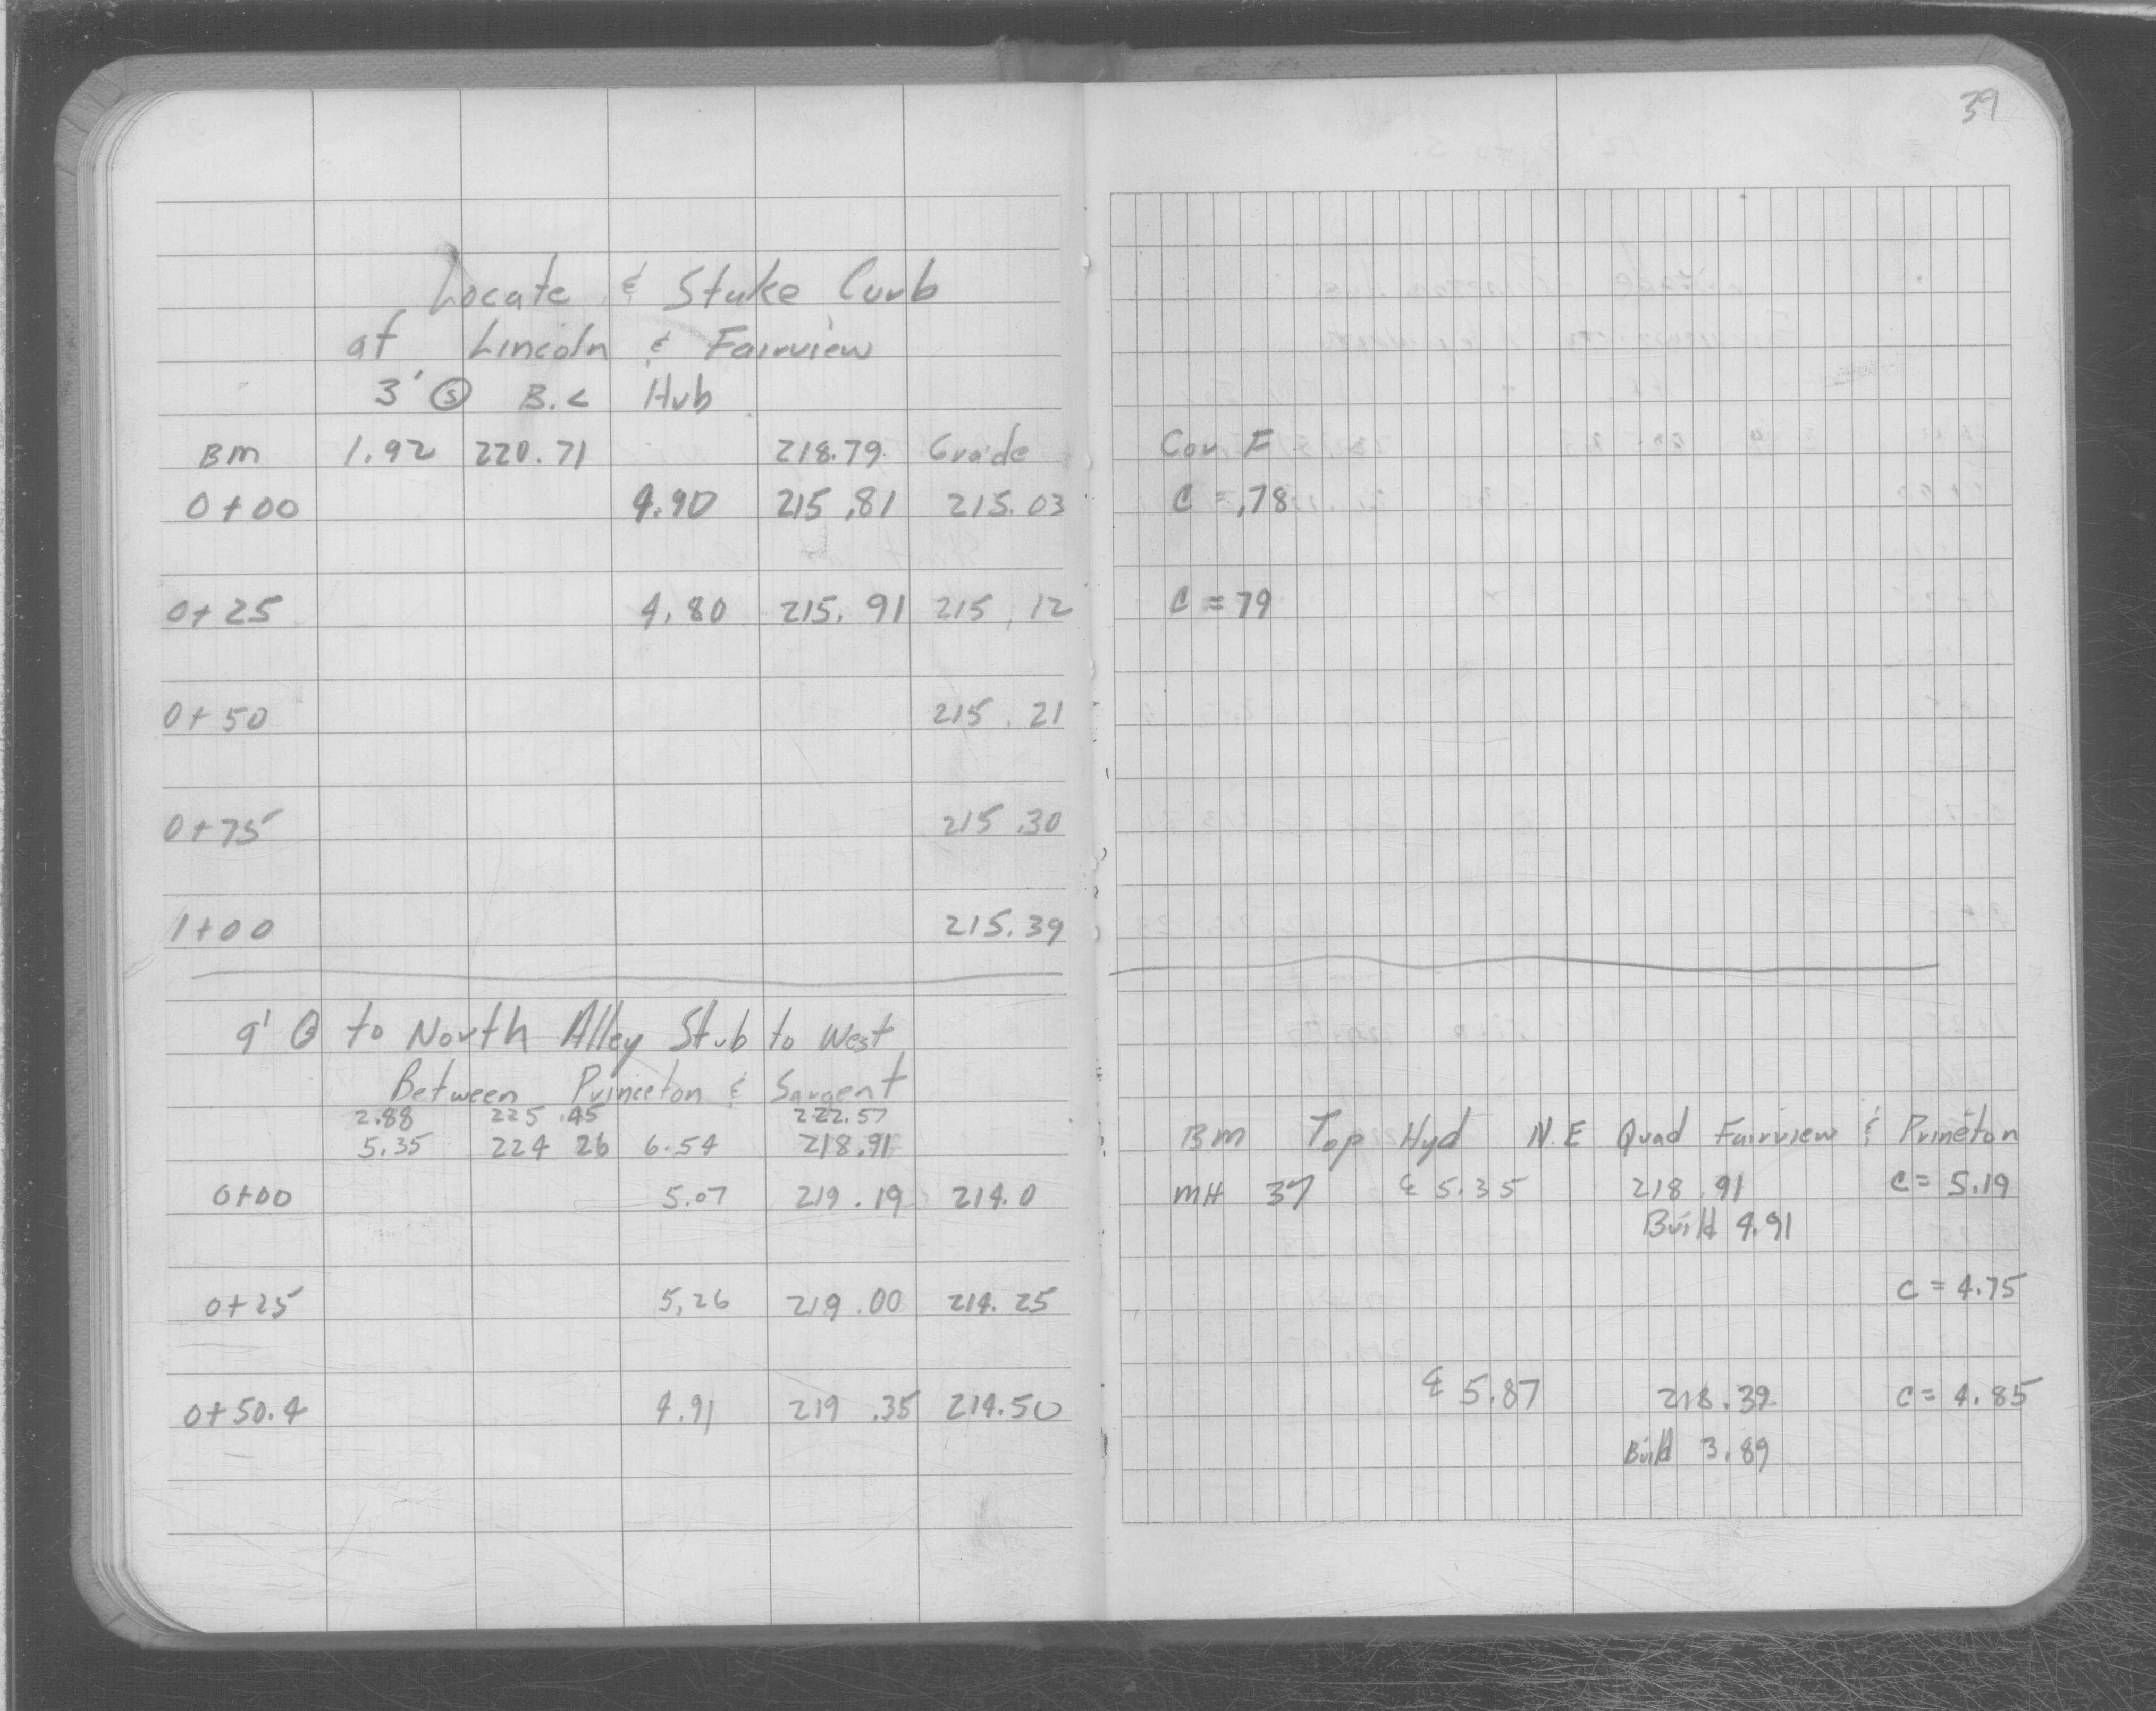 39
Locate & Stake Curb
at Lincoln & Fairview
3' Ⓢ B.C Hub
BM 1.92 220.71 218.79 Grade Cor F
0+00 4.90 215.81 215.03 C = .78
0+25 4.80 215.91 215.12 C = 79
0+50 215.21
0+75 215.30
1+00 215.39
9' to North Alley Stub to West
Between Princeton & Sargent
2.88 225.45 222.57
5.35 224 26 6.54 218.91 BM Top Hyd N.E Quad Fairview & Princeton
0+00 5.07 219.19 214.0 MH 37 ℄ 5.35 218.91 C = 5.19
Build 4.91
0+25 5,26 219.00 214.25 C = 4.75
0+50.4 4.91 219.35 214.50 ℄ 5.87 218.39 C = 4.85
Build 3.89